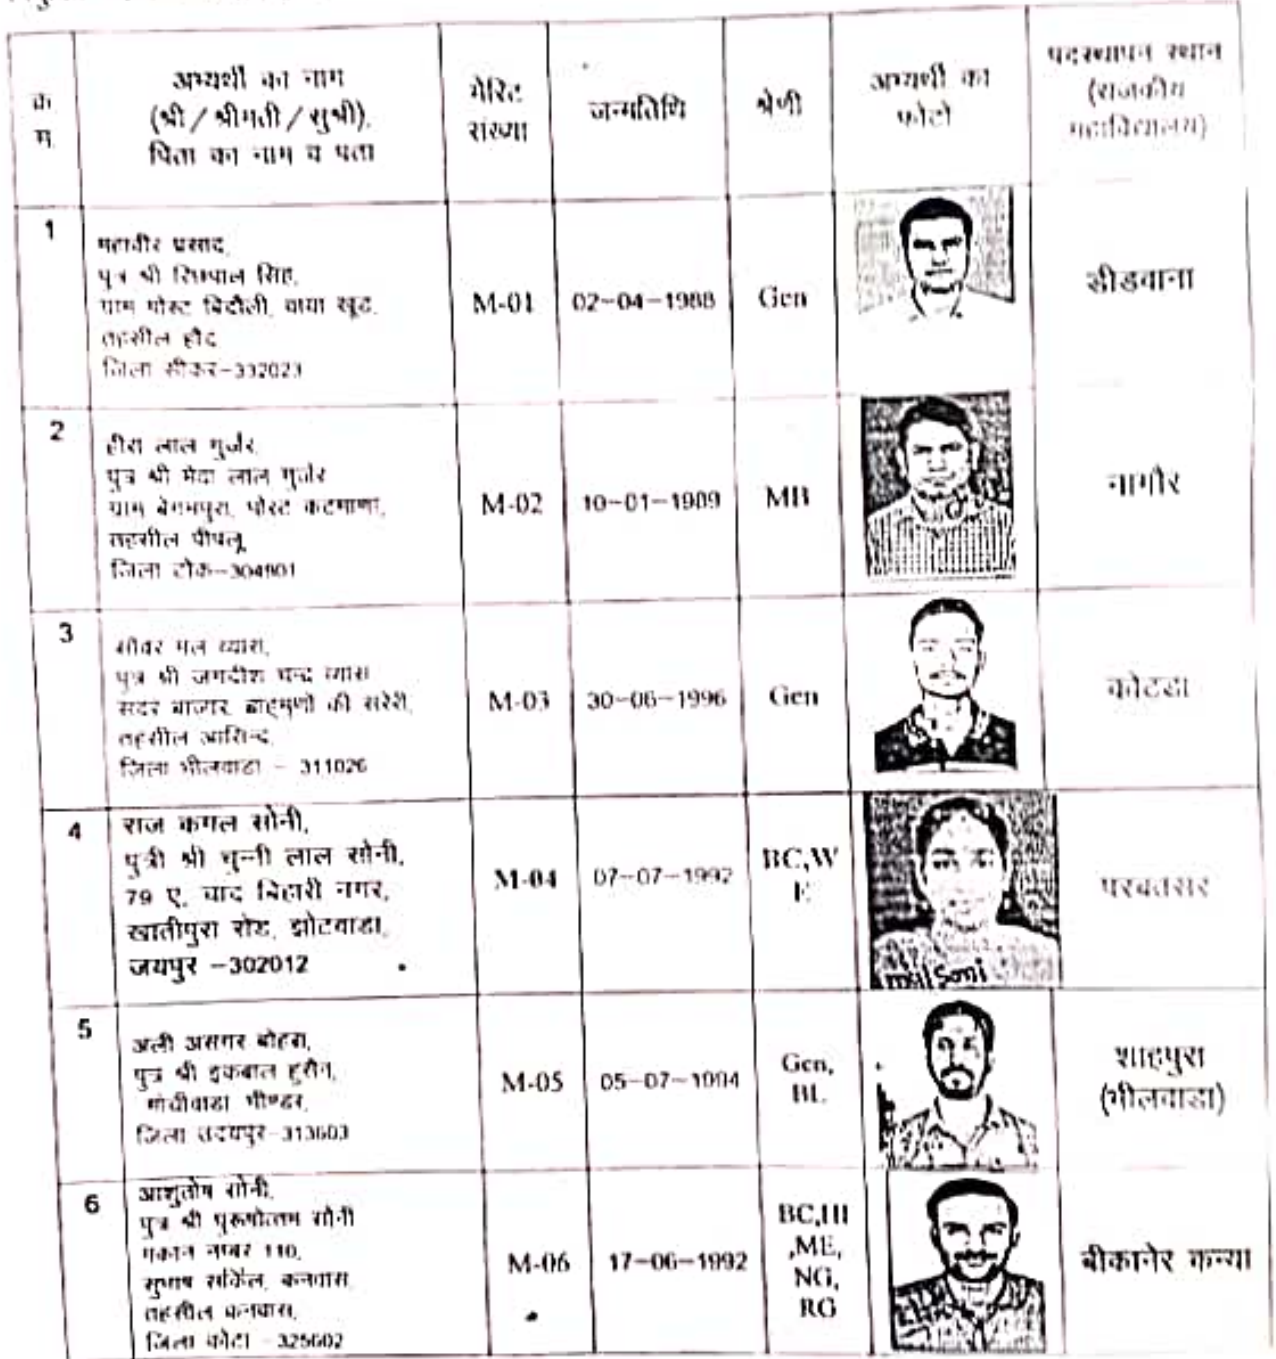 क्र म
अभ्यर्थी का नाम
(श्री / श्रीमती / सुश्री),
पिता का नाम व पता
मेरिट
संख्या
जन्मतिथि
श्रेणी
अभ्यर्थी का
फोटो
पदस्थापन स्थान
(राजकीय
महाविद्यालय)
1
महावीर प्रसाद,
पुत्र श्री सिंह,
ग्राम पोस्ट बिदौली, वाया खूड,
तहसील
जिला सीकर-332023
M-01
02-04-1988
Gen
डीडवाना
2
हीरा लाल गुर्जर,
पुत्र श्री मेदा लाल गुर्जर
ग्राम बेगमपुरा, पोस्ट कठमाणा,
तहसील पीपलू
जिला टोंक-304801
M-02
10-01-1989
MB
नागौर
3
सांवर मल व्यास,
पुत्र श्री जगदीश चन्द व्यास
सदर बाजार, ब्राहमणों की सरेरी,
तहसील आसिन्द,
जिला भीलवाडा - 311026
M-03
30-06-1996
Gen
कोटडा
4
राज कमल सोनी,
पुत्री श्री चुन्नी लाल सोनी,
79 ए, चांद बिहारी नगर,
खातीपुरा रोड, झोटवाडा,
जयपुर -302012
M-04
07-07-1992
BC,W
E
msl Soni
परबतसर
5
अली असगर बोहरा,
पुत्र श्री इकबाल हुसैन,
मोचीवाडा भीण्डर,
जिला उदयपुर-313603
M-05
05-07-1994
Gen,
BL
शाहपुरा
(भीलवाडा)
6
आशुतोष सोनी,
पुत्र श्री पुरूषोत्तम सोनी
मकान नम्बर 110,
सुभाष सर्किल, कनवास,
तहसील कनवास,
जिला कोटा - 325602
M-06
17-06-1992
BC,HI
,ME,
NG,
RG
बीकानेर कन्या